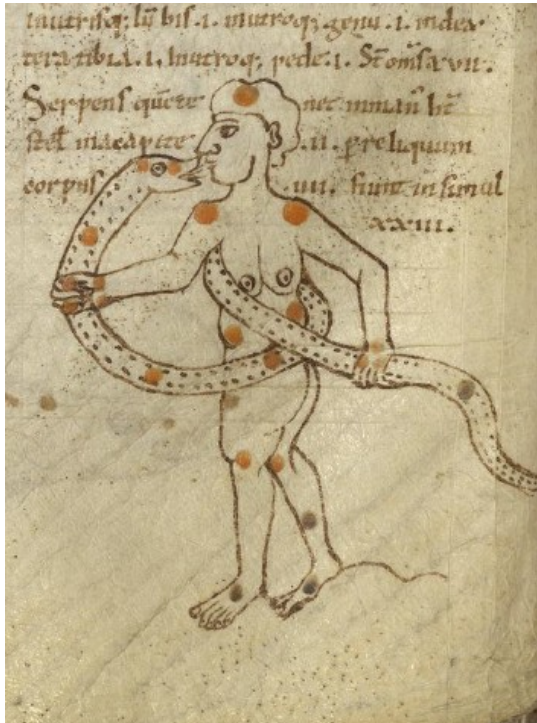 inutrisq; lū bis .i. inutroq; genu .i. index
tera tibia .i. Inutroq; pede .i. St̄ om̄s xvii.
Serpens quē te net inmanu h̄t
stell̄ in capite .ii. p reliquum
corpus .iiii. fiunt insimul
xxiii.